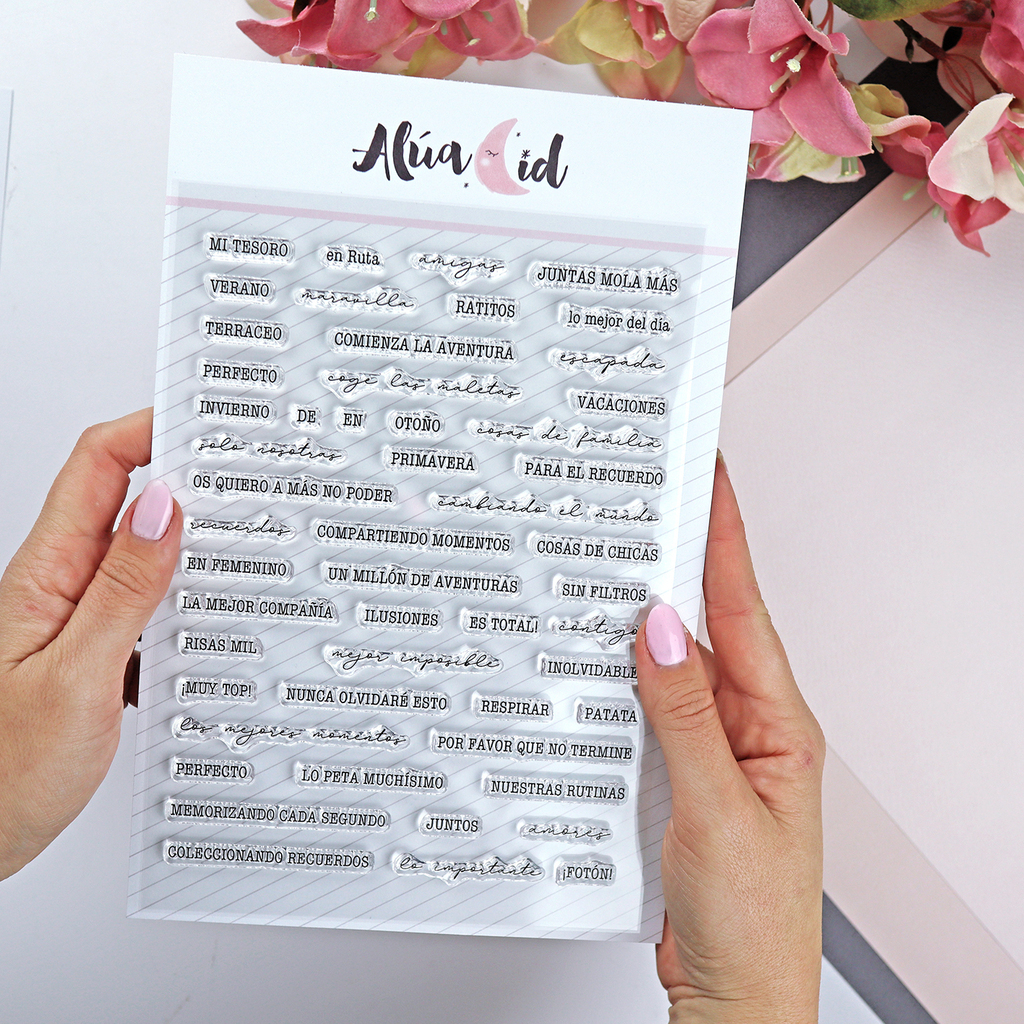 Alúa Cid
MI TESORO en Ruta amigas JUNTAS MOLA MÁS
VERANO maravilla RATITOS lo mejor del día
TERRACEO COMIENZA LA AVENTURA escapada
PERFECTO coge las maletas VACACIONES
INVIERNO DE EN OTOÑO cosas de familia
solo nosotras PRIMAVERA PARA EL RECUERDO
OS QUIERO A MÁS NO PODER cambiando el mundo
recuerdos COMPARTIENDO MOMENTOS COSAS DE CHICAS
EN FEMENINO UN MILLÓN DE AVENTURAS SIN FILTROS
LA MEJOR COMPAÑÍA ILUSIONES ES TOTAL! contigo
RISAS MIL mejor imposible INOLVIDABLE
¡MUY TOP! NUNCA OLVIDARÉ ESTO RESPIRAR PATATA
los mejores momentos POR FAVOR QUE NO TERMINE
PERFECTO LO PETA MUCHÍSIMO NUESTRAS RUTINAS
MEMORIZANDO CADA SEGUNDO JUNTOS amores
COLECCIONANDO RECUERDOS lo importante ¡FOTÓN!